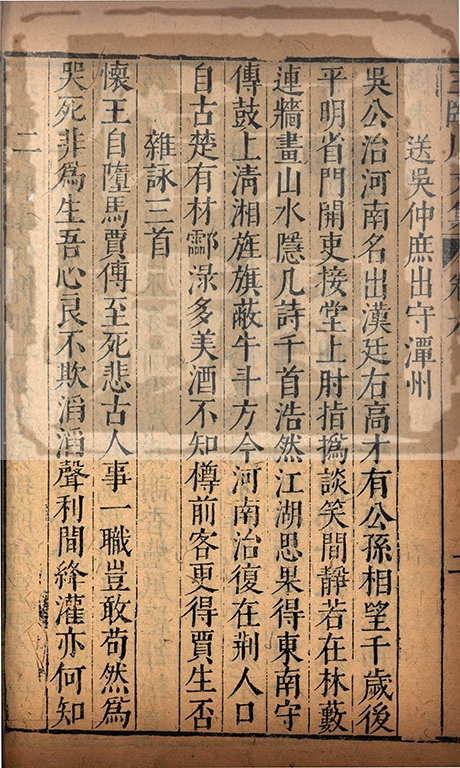 王臨川文集 卷六 二
送吳仲庶出守潭州
吳公治河南名出漢廷右高才有公孫相望千歲後
平明省門開吏接堂上肘指撝談笑間靜若在林藪
連牆畫山水隱几詩千首浩然江湖思果得東南守
傳鼓上清湘旌旗蔽牛斗方今河南治復在荊人口
自古楚有材酃淥多美酒不知樽前客更得賈生否
雜詠三首
懷王自墮馬賈傅至死悲古人事一職豈敢苟然為
哭死非為生吾心良不欺滔滔聲利間絳灌亦何知
二